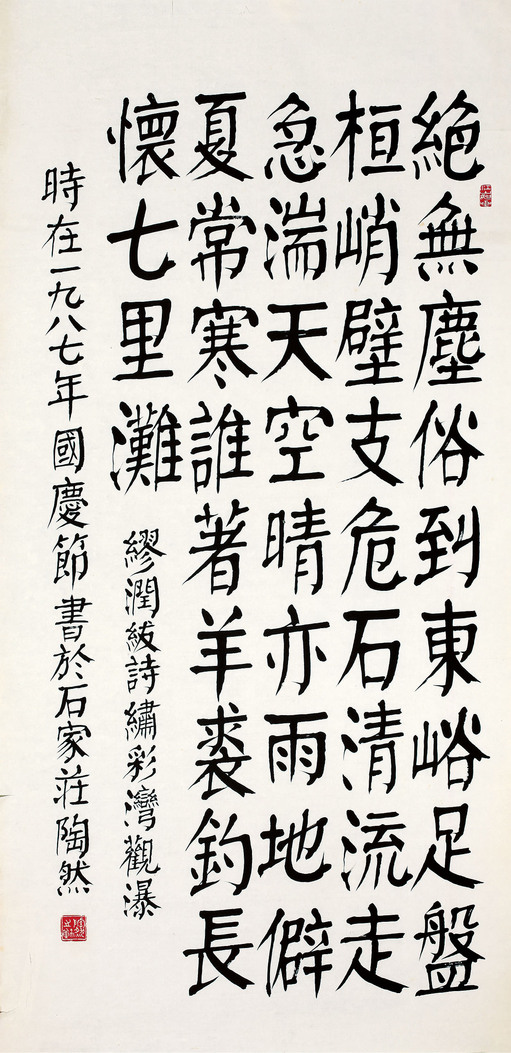 絕無塵俗到東峪足盤
桓峭壁支危石清流走
急湍天空晴亦雨地僻
夏常寒誰著羊裘釣長
懷七里灘
繆潤紱詩繡彩灣觀瀑
時在一九八七年國慶節書於石家莊陶然